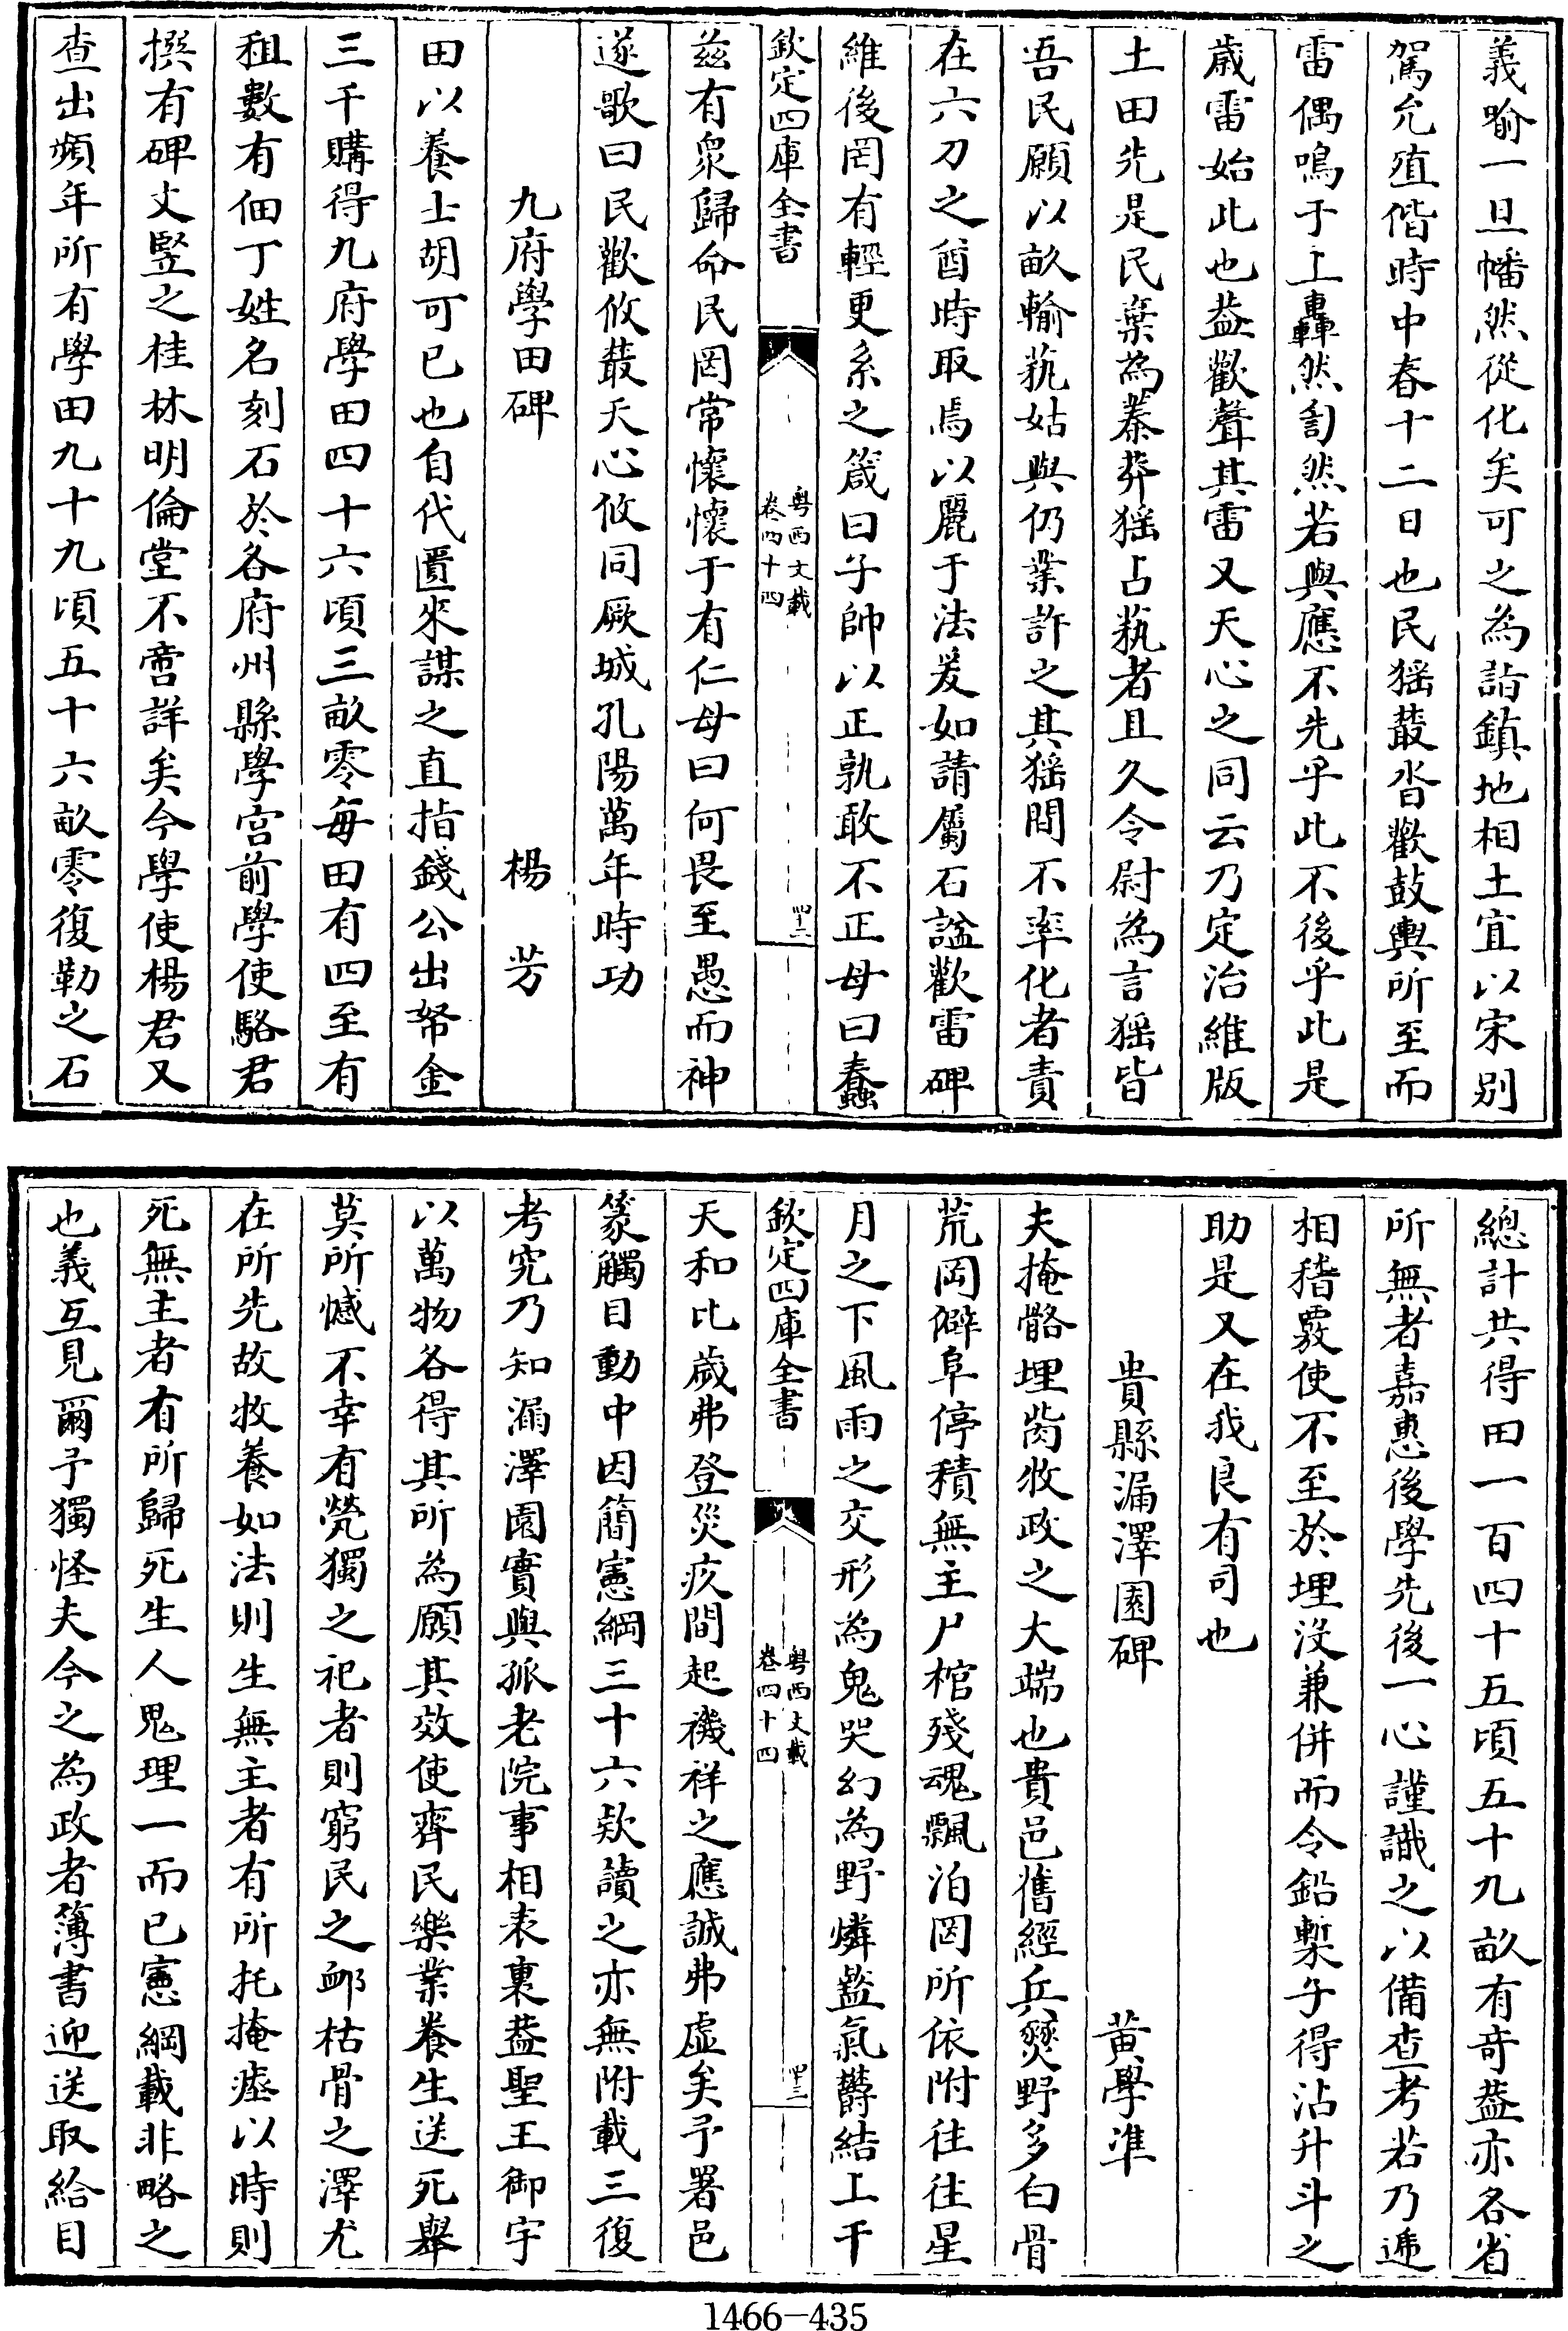 義喻一旦幡然從化矣可之為詣鎮地相土宜以宋别
駕允殖偕時中春十二日也民猺䕺沓歡鼓輿所至而
雷偶鳴于上轟然訇然若與應不先乎此不後乎此是
歳雷始此也葢歡聲其雷又天心之同云乃定治維版
土田先是民棄為蓁莽猺占蓺者且久令尉為言猺皆
吾民願以畝輸蓺姑與仍業許之其猺間不率化者責
在六刀之酋時取焉以麗于法爰如請屬石諡歡雷碑
維後罔有輕更系之箴曰子帥以正孰敢不正毋曰蠢
欽定四庫全書 粤西文載 卷四十四 四十二
兹有衆歸命民罔常懷懷于有仁毋曰何畏至愚而神
遂歌曰民歡攸叢天心攸同厥城孔陽萬年時功
九府學田碑 楊芳
田以養士胡可已也自代匱來謀之直指錢公出帑金
三千購得九府學田四十六頃三畝零每田有四至有
租數有佃丁姓名刻石於各府州縣學宫前學使駱君
撰有碑文竪之桂林明倫堂不啻詳矣今學使楊君又
查出頻年所有學田九十九頃五十六畝零復勒之石
總計共得田一百四十五頃五十九畝有奇葢亦各省
所無者嘉惠後學先後一心謹識之以備查考若乃遞
相稽覈使不至於埋没兼併而令鉛槧子得沾升斗之
助是又在我良有司也
貴縣漏澤園碑 黄學準
夫掩骼埋胔收政之大端也貴邑舊經兵燹野多白骨
荒岡僻阜停積無主尸棺殘魂飄泊罔所依附往往星
月之下風雨之交形為鬼哭幻為野燐盩氣欝結上干
欽定四庫全書 粤西文載 卷四十四 四十三
天和比歳弗登災疚間起禨祥之應誠弗虚矣予署邑
篆觸目動中因簡憲綱三十六欵讀之亦無附載三復
考究乃知漏澤園實與孤老院事相表裏葢聖王御宇
以萬物各得其所為願其效使齊民樂業養生送死舉
莫所憾不幸有煢獨之祀者則窮民之䘏枯骨之澤尤
在所先故收養如法則生無主者有所托掩瘞以時則
死無主者有所歸死生人鬼理一而已憲綱載非略之
也義互見爾予獨怪夫今之為政者簿書迎送取給目
1466-435